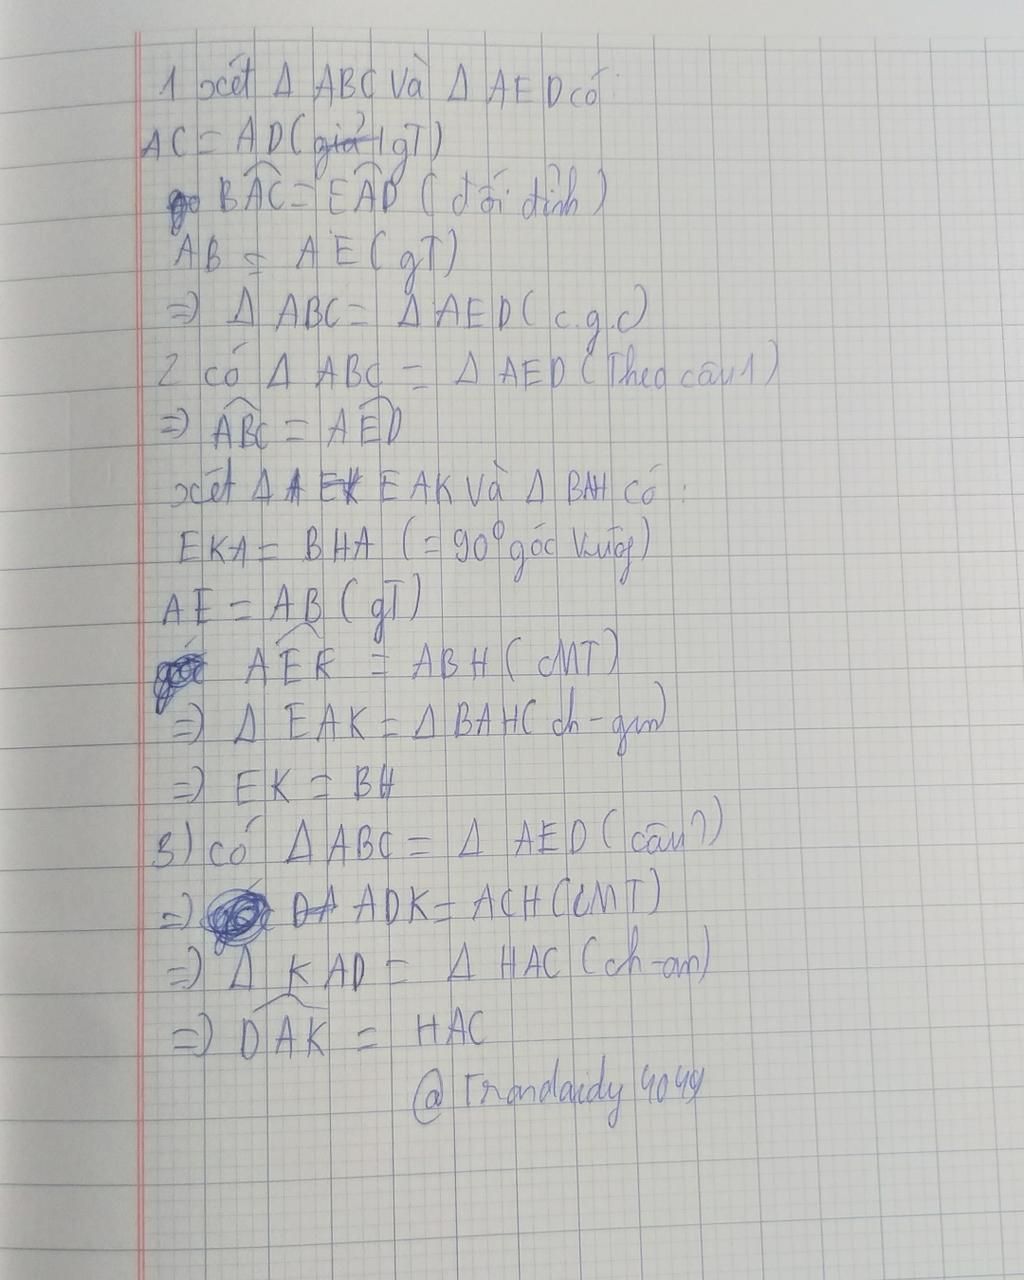 1 xét Δ ABC và Δ AED có:
AC = AD (giả gT)
BAC = EAD (đối đỉnh)
AB = AE (gT)
=> Δ ABC = Δ AED (c.g.c)
2 có Δ ABC = Δ AED (Theo câu 1)
=> ABC = AED
xét Δ A EK EAK và Δ BAH có:
EKA = BHA (= 90° góc vuông)
AE = AB (gT)
góc AEK = ABH (CMT)
=> Δ EAK = Δ BAH (ch-gn)
=> EK = BH
3) có Δ ABC = Δ AED (câu 1)
=> DA ADK = ACH (CMT)
=> Δ KAD = Δ HAC (ch-gn)
=> DAK = HAC
@Trandaidy4049